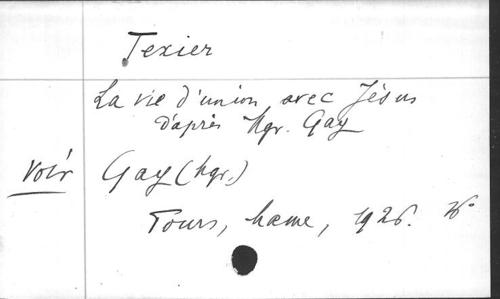 Texier
La vie d'union avec Jésus
d'après Mgr. Gay
voir Gay (Mgr.)
Tours, Mame, 1926. 16°